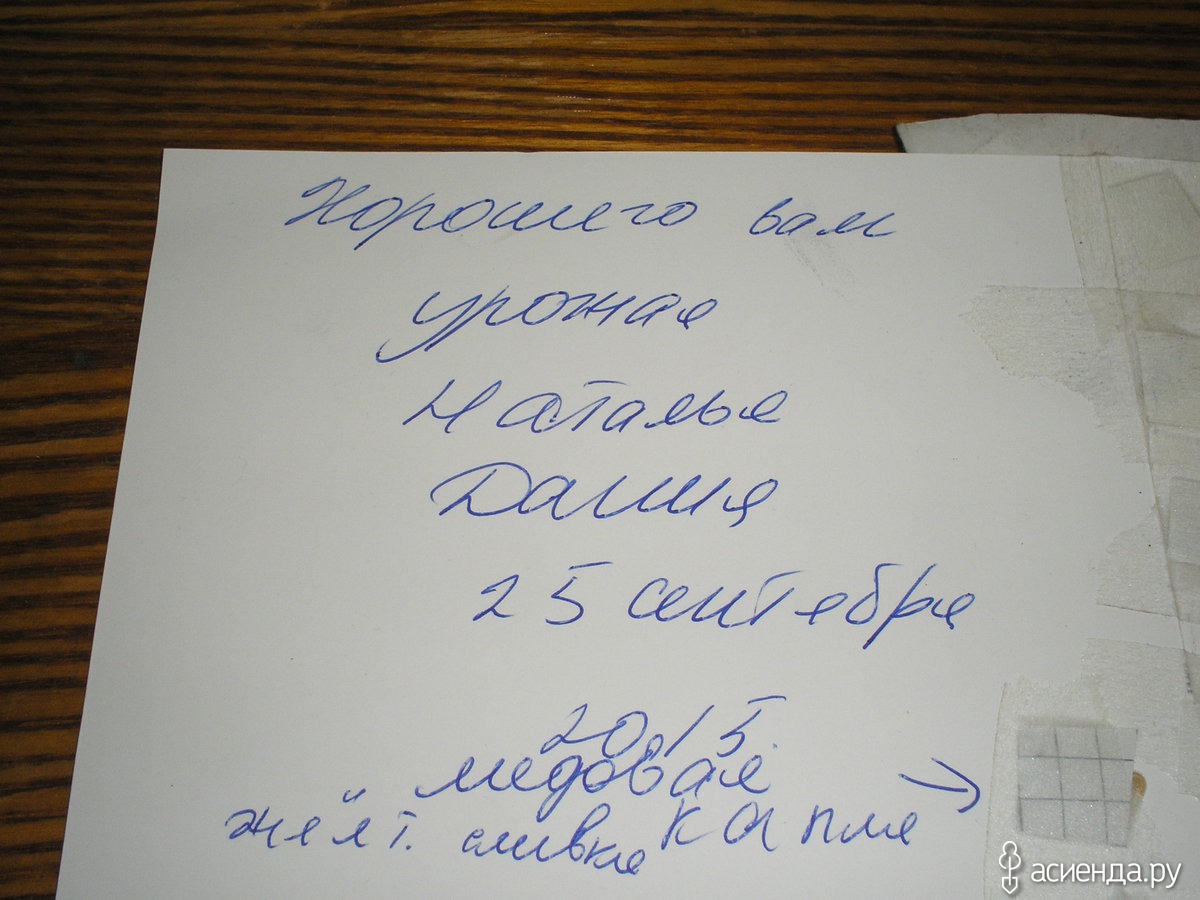 Хорошего вам
урожая
Наталья
Дания
25 сентября
2015
медовая
жёлт. сливка капля
асиенда.ру